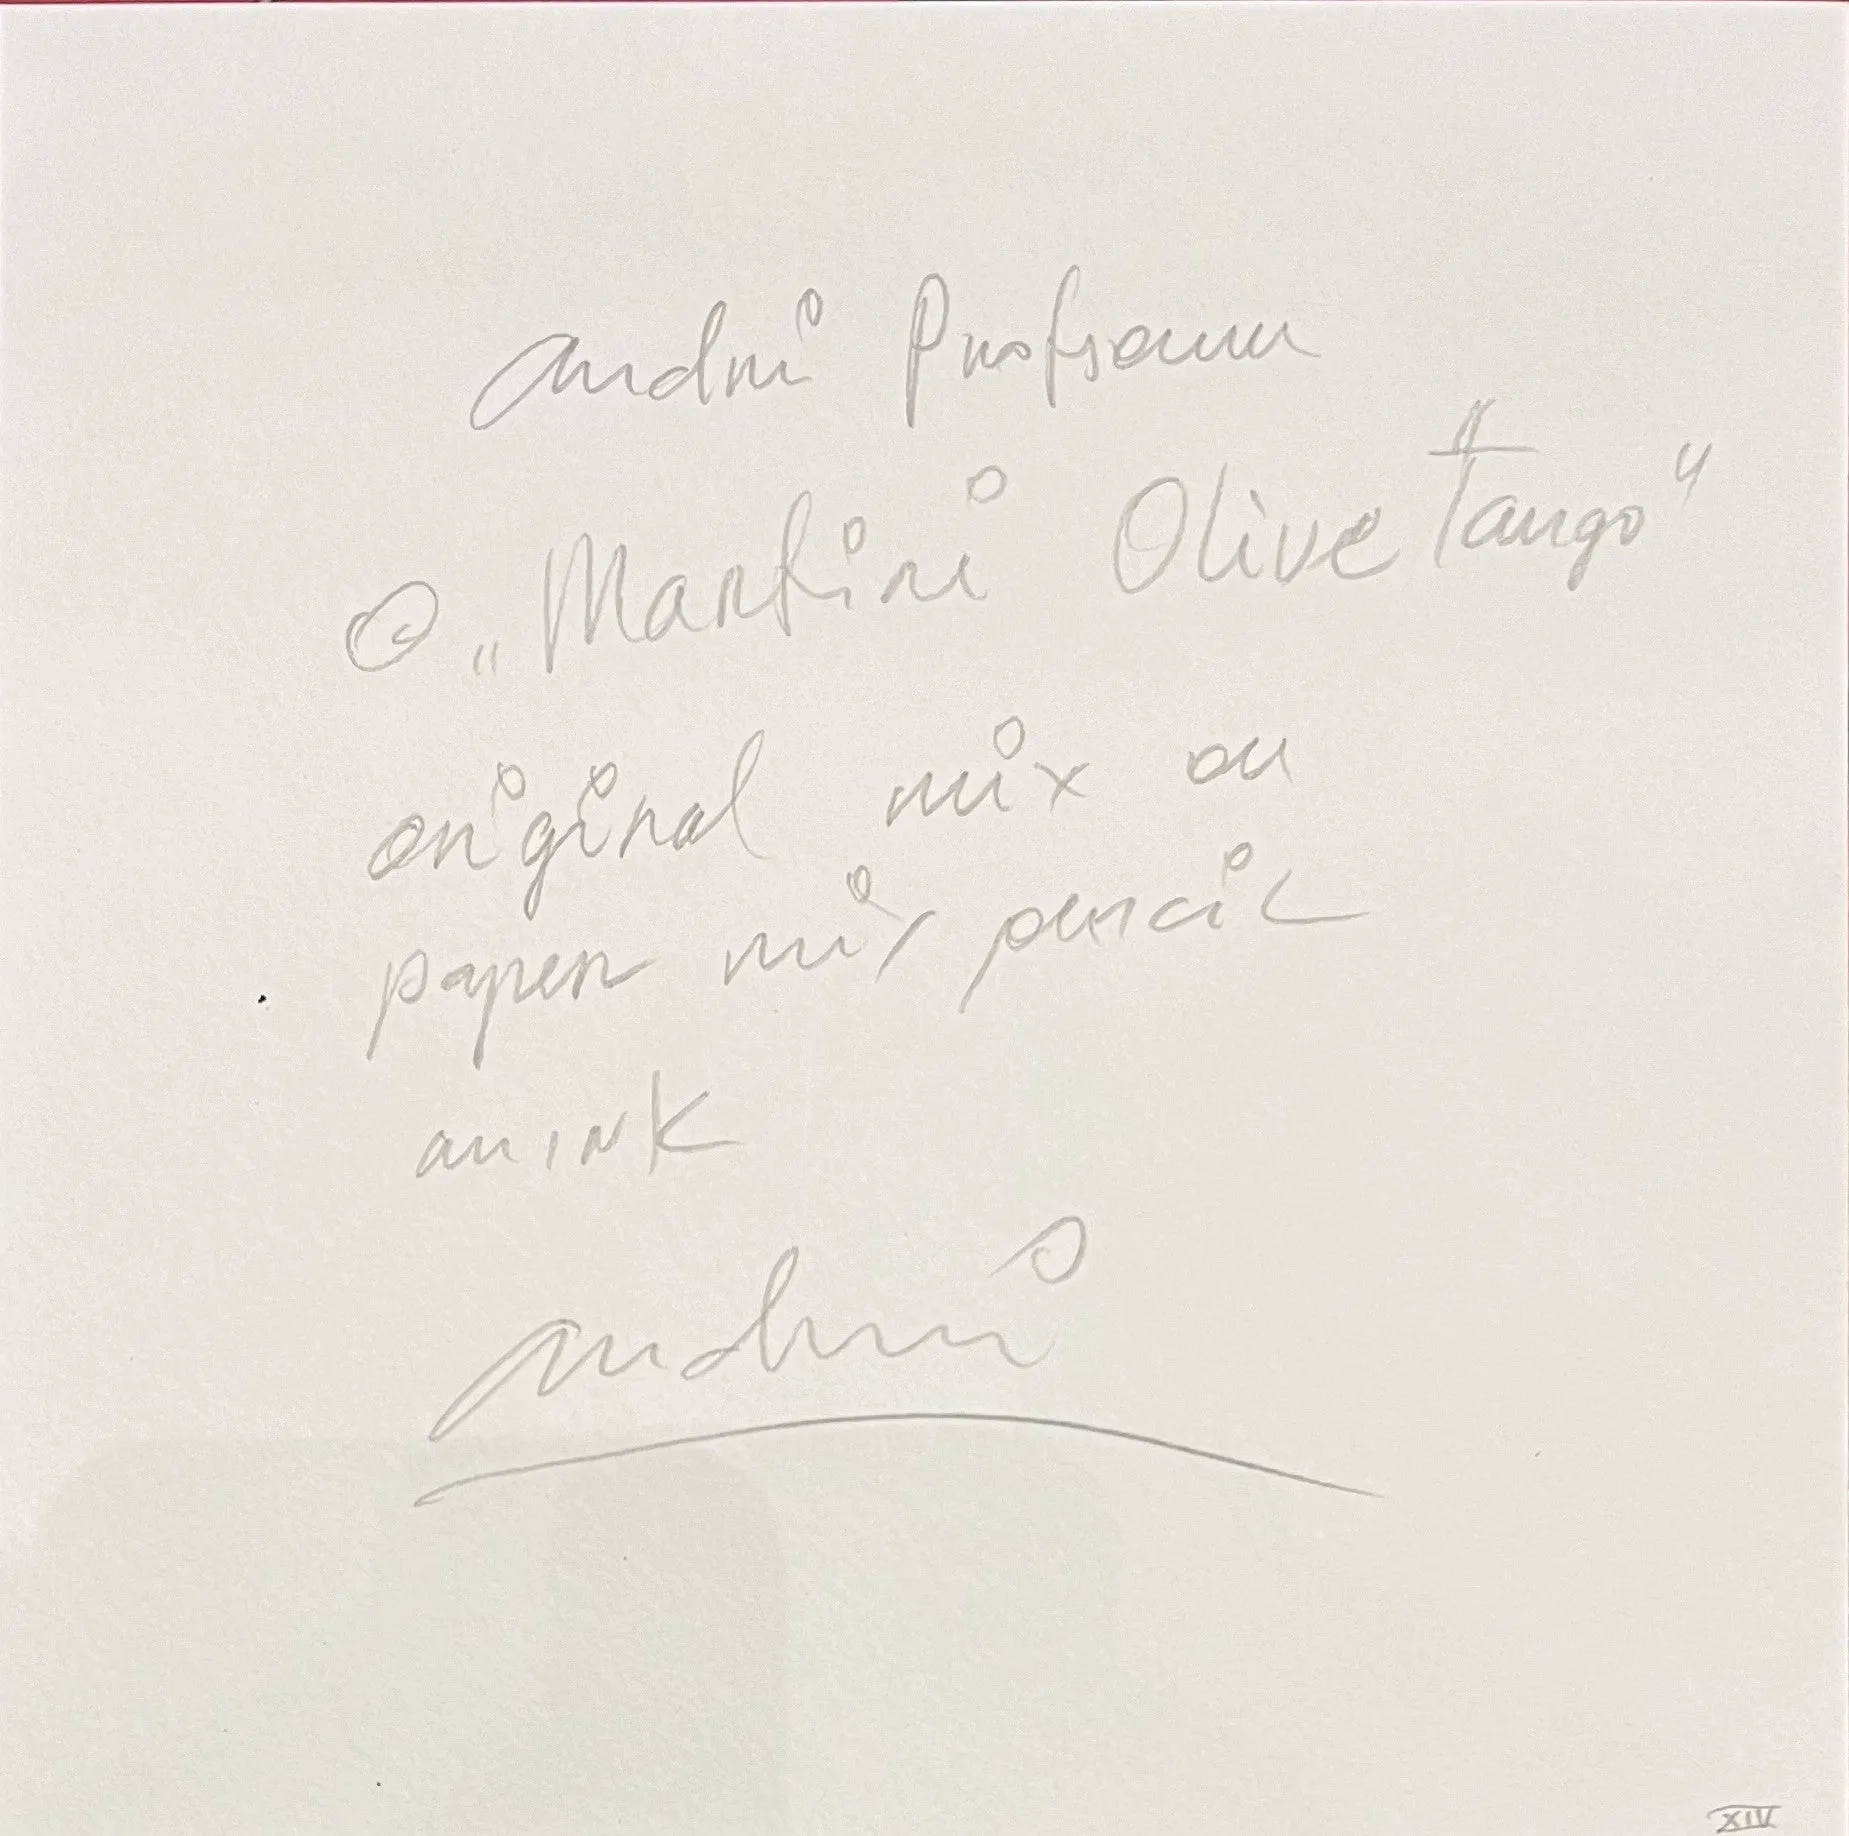 Andrei Protsouk
© „Martini Olive Tango“
original mix on
paper mix pencil
an ink
Andrei
XIV